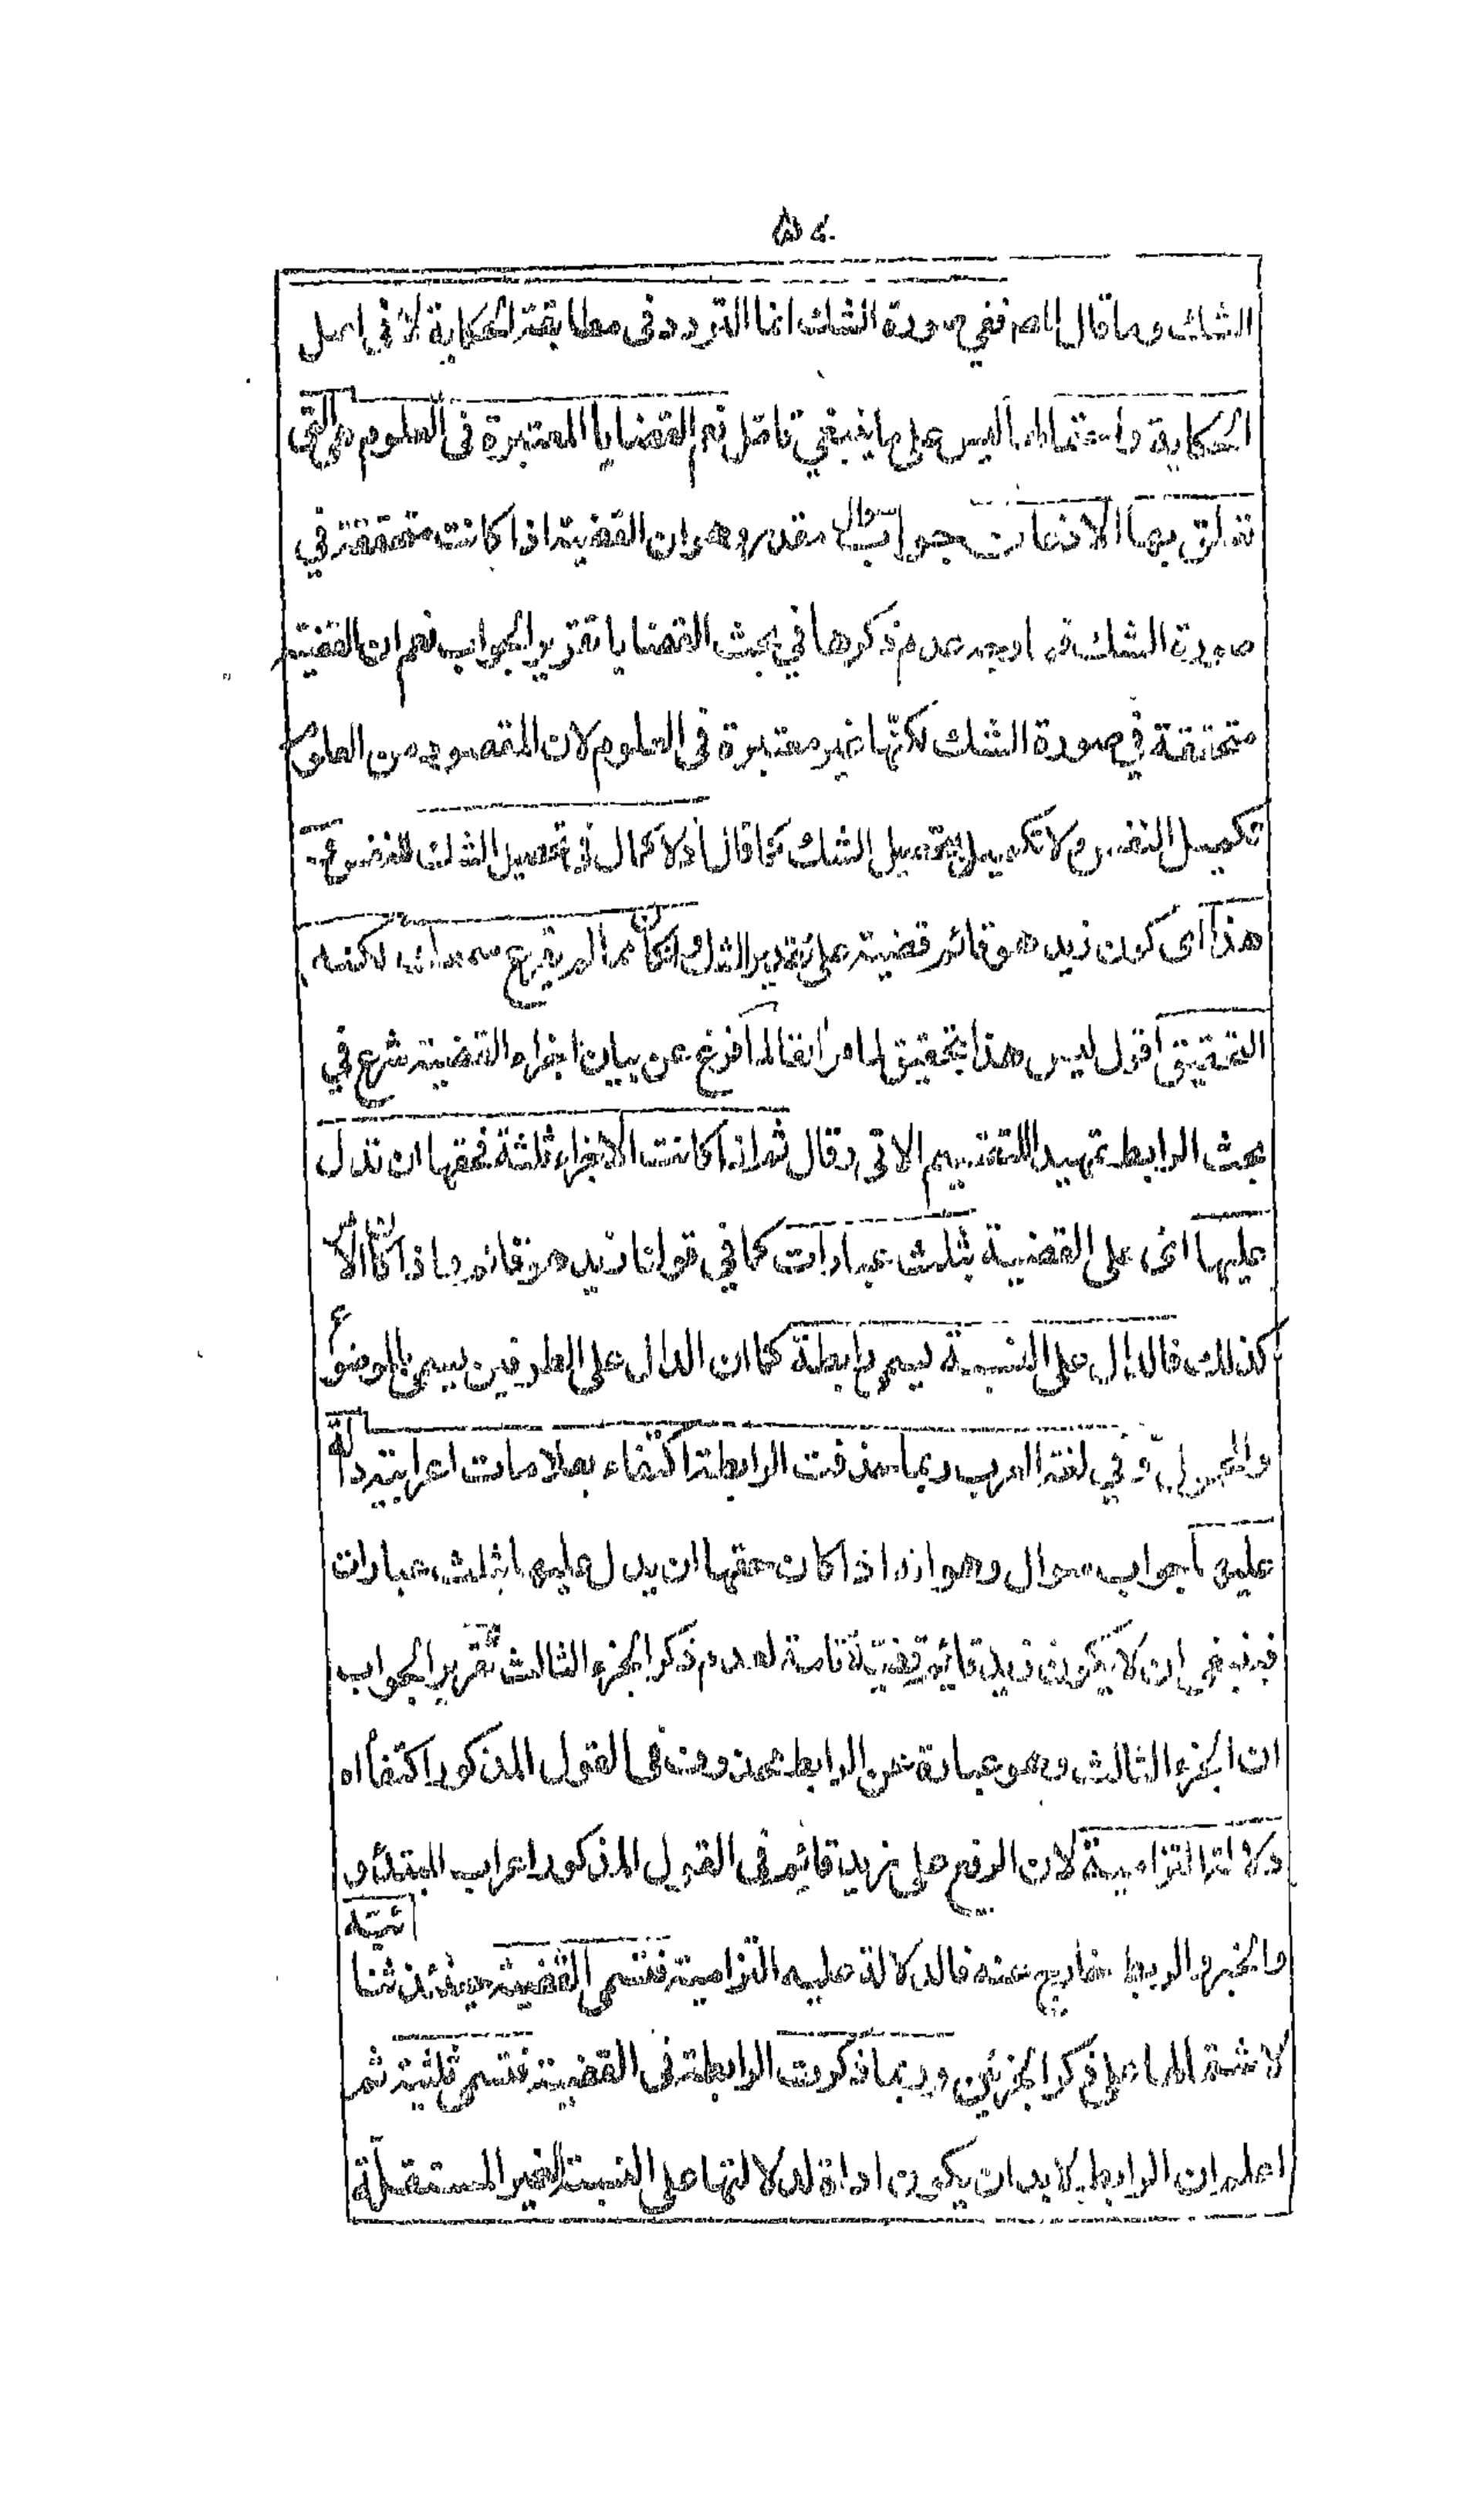 الشك وما قال المص ففي صورة الشك انما التردد في مطابقة الحكاية لا في اصل
الحكاية واحتمالها ليس على ما ينبغي تأمل نعم القضايا المعتبرة في العلوم هي التي
تعلق بها الاذعان جواب سوال مقدر وهو ان القضية اذا كانت متحققة في
صورة الشك فما وجه عدم ذكرها في بحث القضايا تقرير الجواب نعم ان القضية
متحققة في صورة الشك لكنها غير معتبرة في العلوم لان المقصود من العلوم
تكميل النفس ولا تكميل بتحصيل الشك كما قال اذ لا كمال في تحصيل الشك
هذا اى كون زيد هو قائم قضية على تقدير الشك وان كان مما لم يقرع سمعك لكنه
التحقيق اقول ليس هذا بتحقيق لما مر انفا لما فرغ عن بيان اجزاء القضية شرع في
بحث الرابط تمهيدا للتقسيم الاتي وقال ثم اذا كانت الاجزاء ثلثة فحقها ان تدل
عليها اى على القضية بثلث عبارات كما في قولنا زيد هو قائم واذا كان الامر
كذلك فالدال على النسبة يسمى رابطة كما ان الدال على الطرفين يسمى بالموضوع
والمحمول و في لغة العرب ربما حذفت الرابطة اكتفاء بعلامات اعرابية دالة
عليها جواب سوال وهو انه اذا كان حقها ان يدل عليها بثلث عبارات
فينبغي ان لا يكون زيد قائم قضية تامة لعدم ذكر الجزء الثالث تقرير الجواب
ان الجزء الثالث وهو عبارة عن الرابط محذوف في القول المذكور اكتفاء
دلالة التزامية لان الرفع على زيد قائم في القول المذكور اعراب المبتدأ و
والخبر والربط خارج عنه فالدلالة عليه التزامية فتسمى القضية حينئذ ثنائية
لاشتمالها على ذكر الجزئين وربما ذكرت الرابطة في القضية فتسمى ثلثية ثم
اعلم ان الرابط لا بد ان يكون اداة لدلالتها على النسبة الغير المستقلة